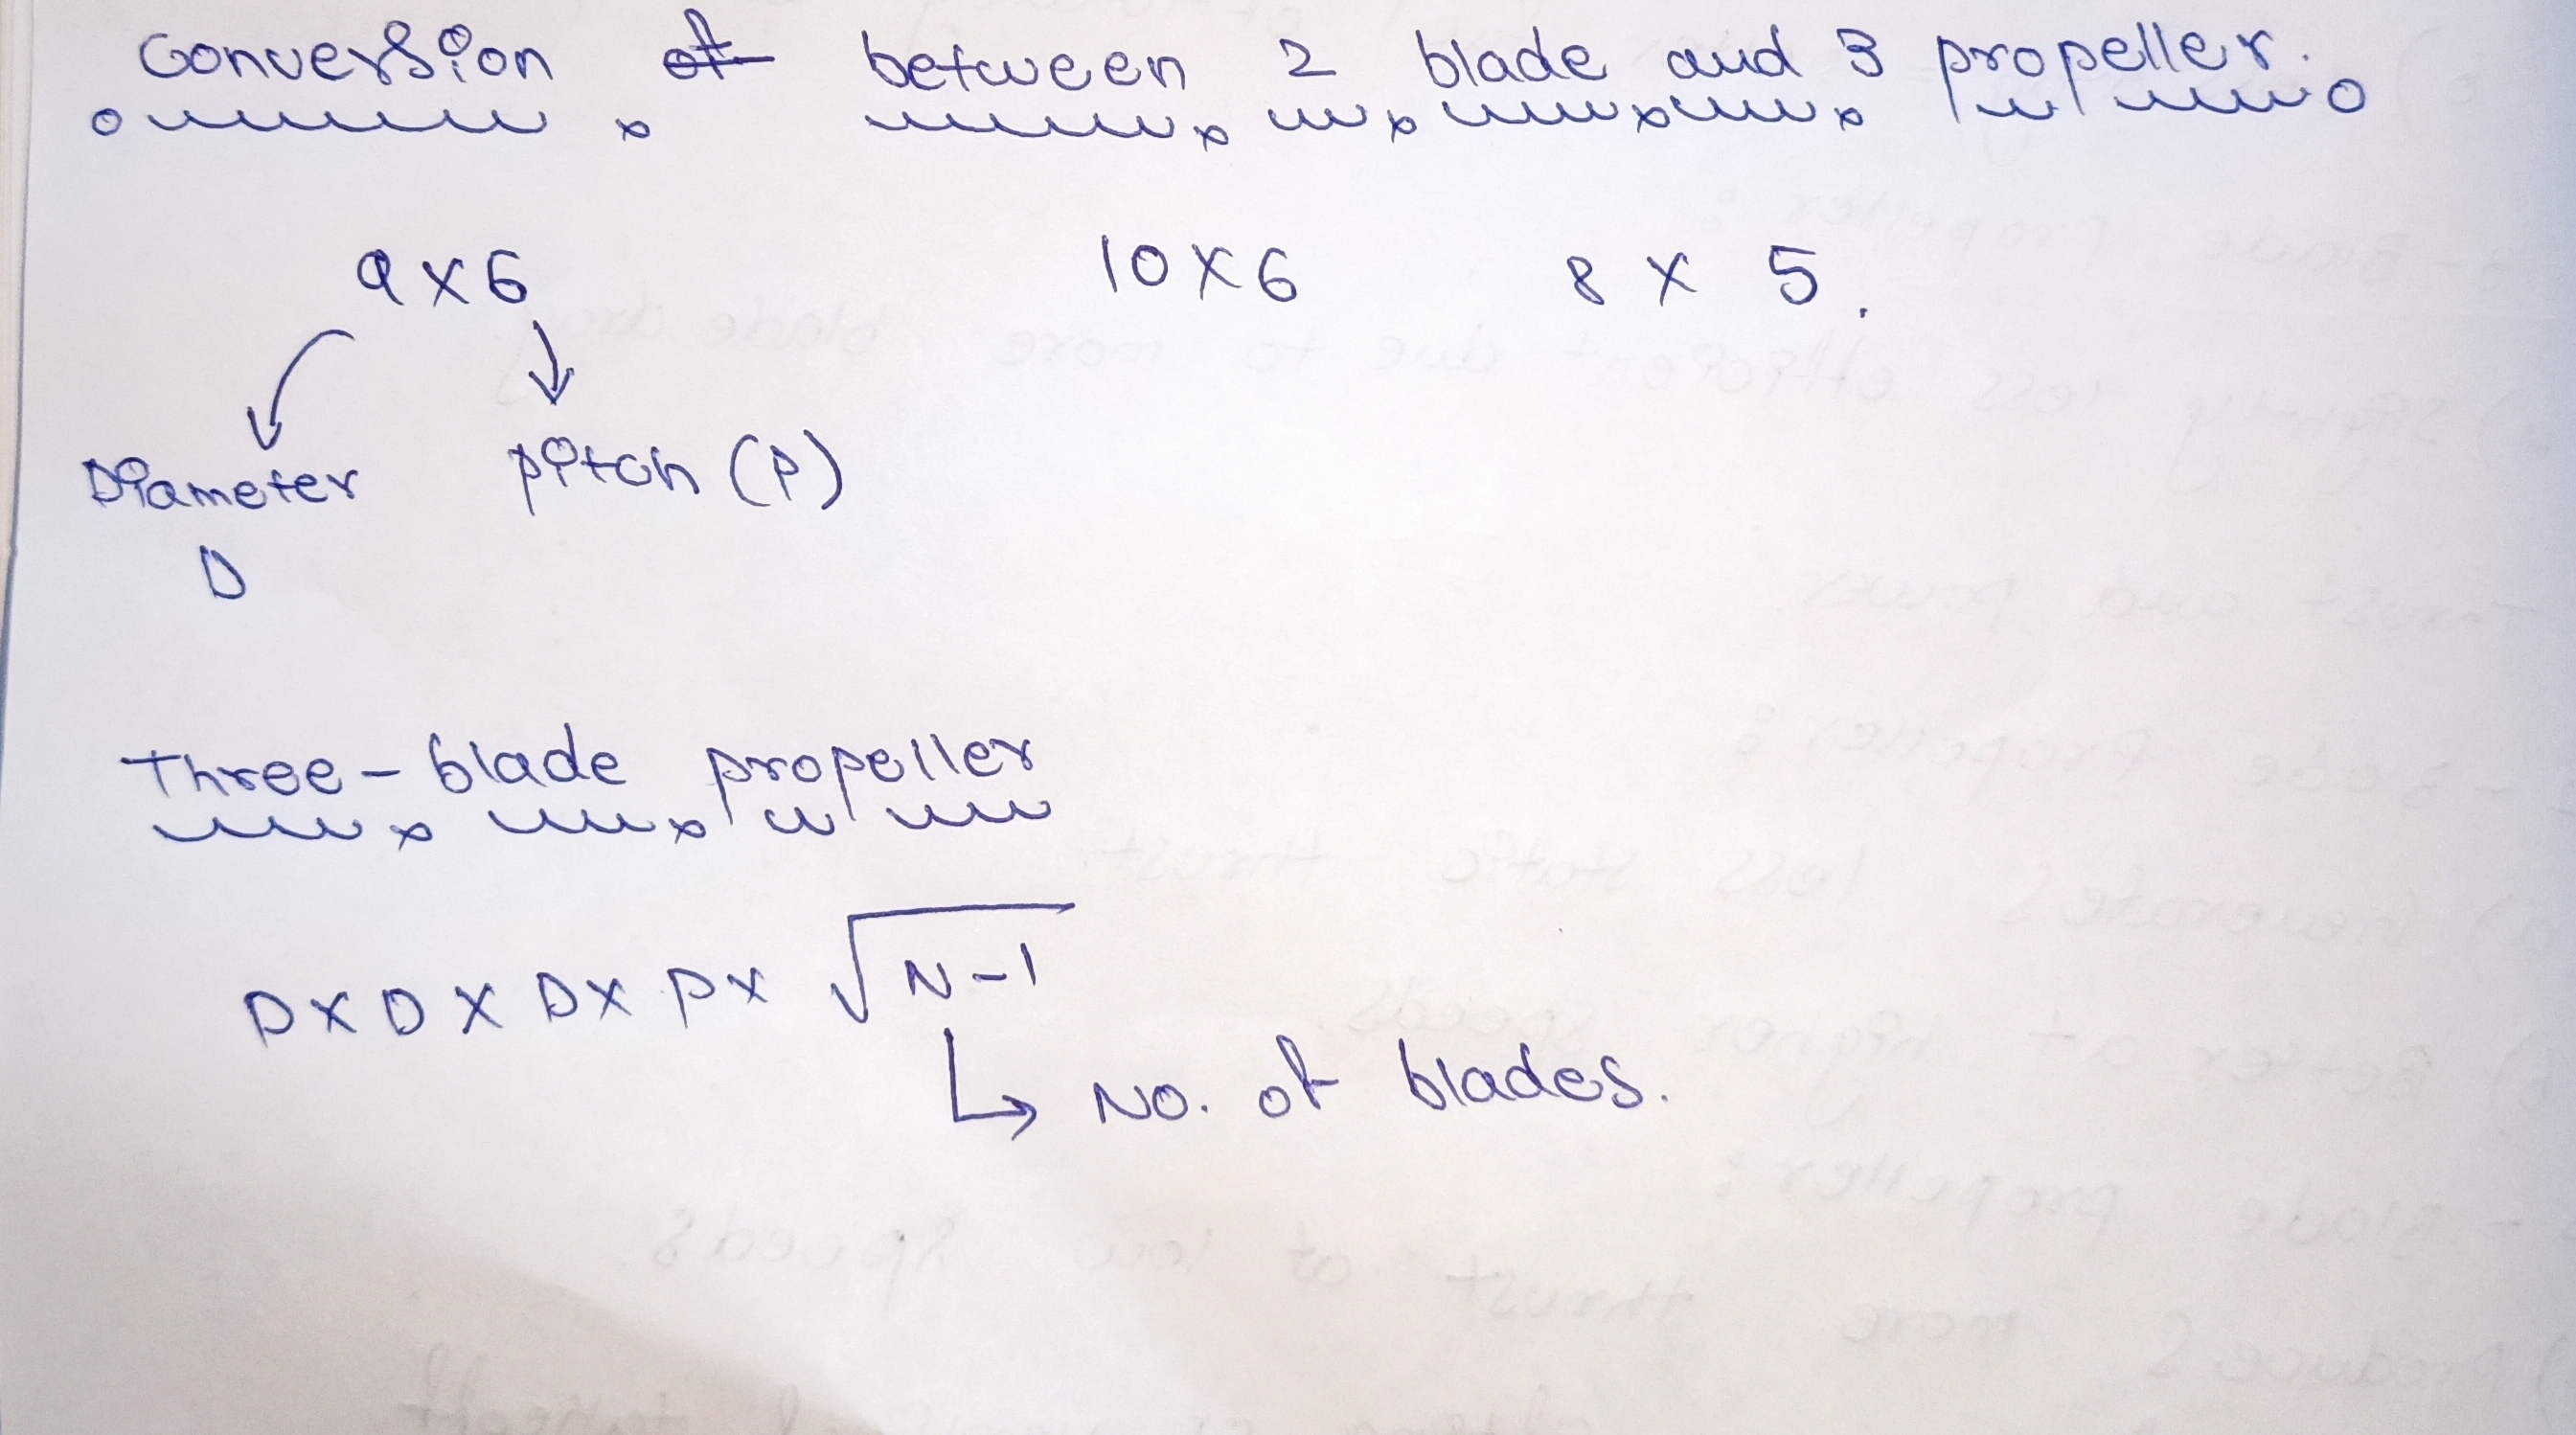 Conversion of between 2 blade and 3 propeller.
9 x 6 10 x 6 8 x 5.
Diameter pitch (P)
D
Three-blade propeller
D x D x D x P x √N-1
No. of blades.